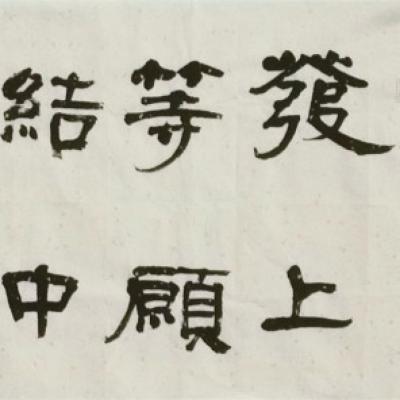 發上
等願
結中